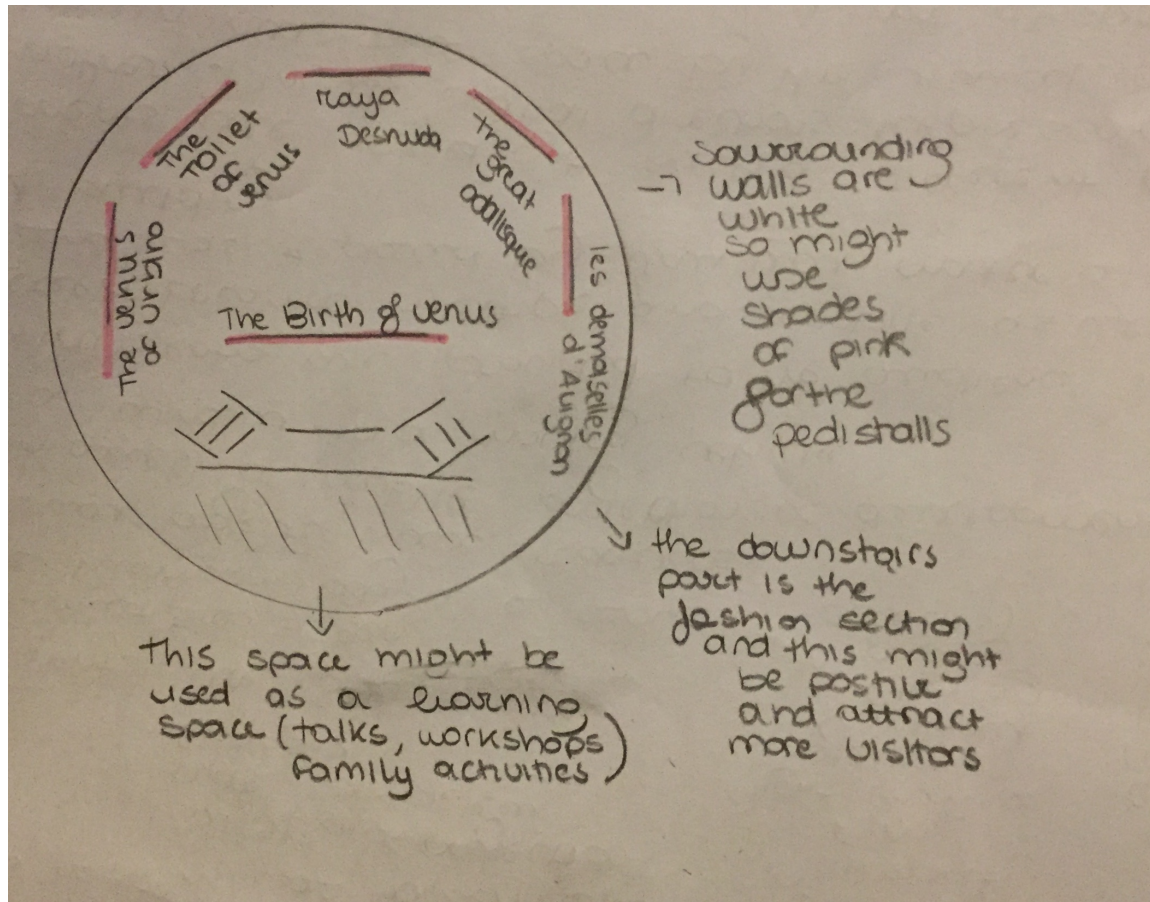 The
Toilet
of
venus
maya
Desnuda
the
great
odalisque
The venus
of urbino
les demaselles
d'Avignon
The Birth of venus
sourrounding
→ walls are
white
so might
use
shades
of pink
for the
pedistalls
the downstairs
part is the
fashion section
and this might
be postive
and attract
more visitors
This space might be
used as a learning
space (talks, workshops
family activities)